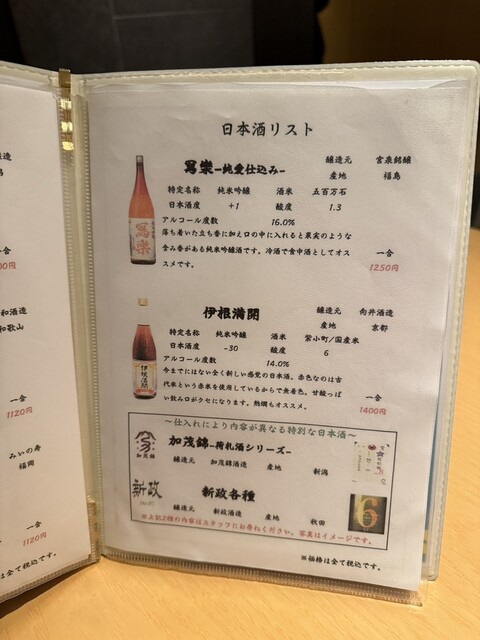 日本酒リスト
冩樂-純愛仕込み- 醸造元 宮泉銘醸
産地 福島
特定名称 純米吟醸 酒米 五百万石
日本酒度 +1 酸度 1.3
アルコール度数 16.0%
落ち着いた立ち香に加え口の中に入れると果実のような
含み香がある純米吟醸酒です。冷酒で食中酒としてオス
スメです。
一合
1250円
冩樂
伊根満開 醸造元 向井酒造
産地 京都
特定名称 純米吟醸 酒米 紫小町/国産米
日本酒度 -30 酸度 6
アルコール度数 14.0%
今までにはない全く新しい感覚の日本酒。赤色なのは古
代米という赤米を使用しているからで無着色。甘酸っぱ
い飲み口がクセになります。熱燗もオススメ。
一合
1400円
伊根満開
～仕入れにより内容が異なる特別な日本酒～
加茂錦
加茂錦-荷札酒シリーズ-
醸造元 加茂錦酒造 産地 新潟
新政
新政各種
醸造元 新政酒造 産地 秋田
6
※上記2種の内容はスタッフにお尋ねください。写真はイメージです。
※価格は全て税込です。
醸造
一合
00円
和酒造
和歌山
一合
1120円
みいの寿
福岡
一合
1120円
は全て税込です。